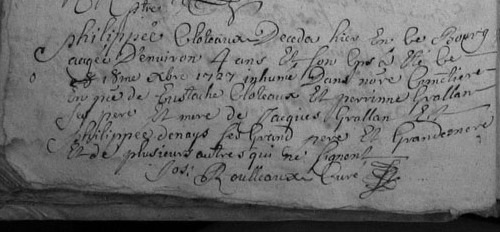 philippée Cloteaux Deceda hier En ce Bourg
aagée D'environ 4 ans Et son Cps a Eté ce
18me xbre 1727 inhumé Dans nôre Cymetiere
En pnce de Eustache Cloteaux Et perrinne Grallan
Ses pere Et mere de Jacques Grallan Et
philippée denays ses Grand pere Et Grandemere
Et de plusieurs autres qui ne signent
Jos: Roulleaux Curé